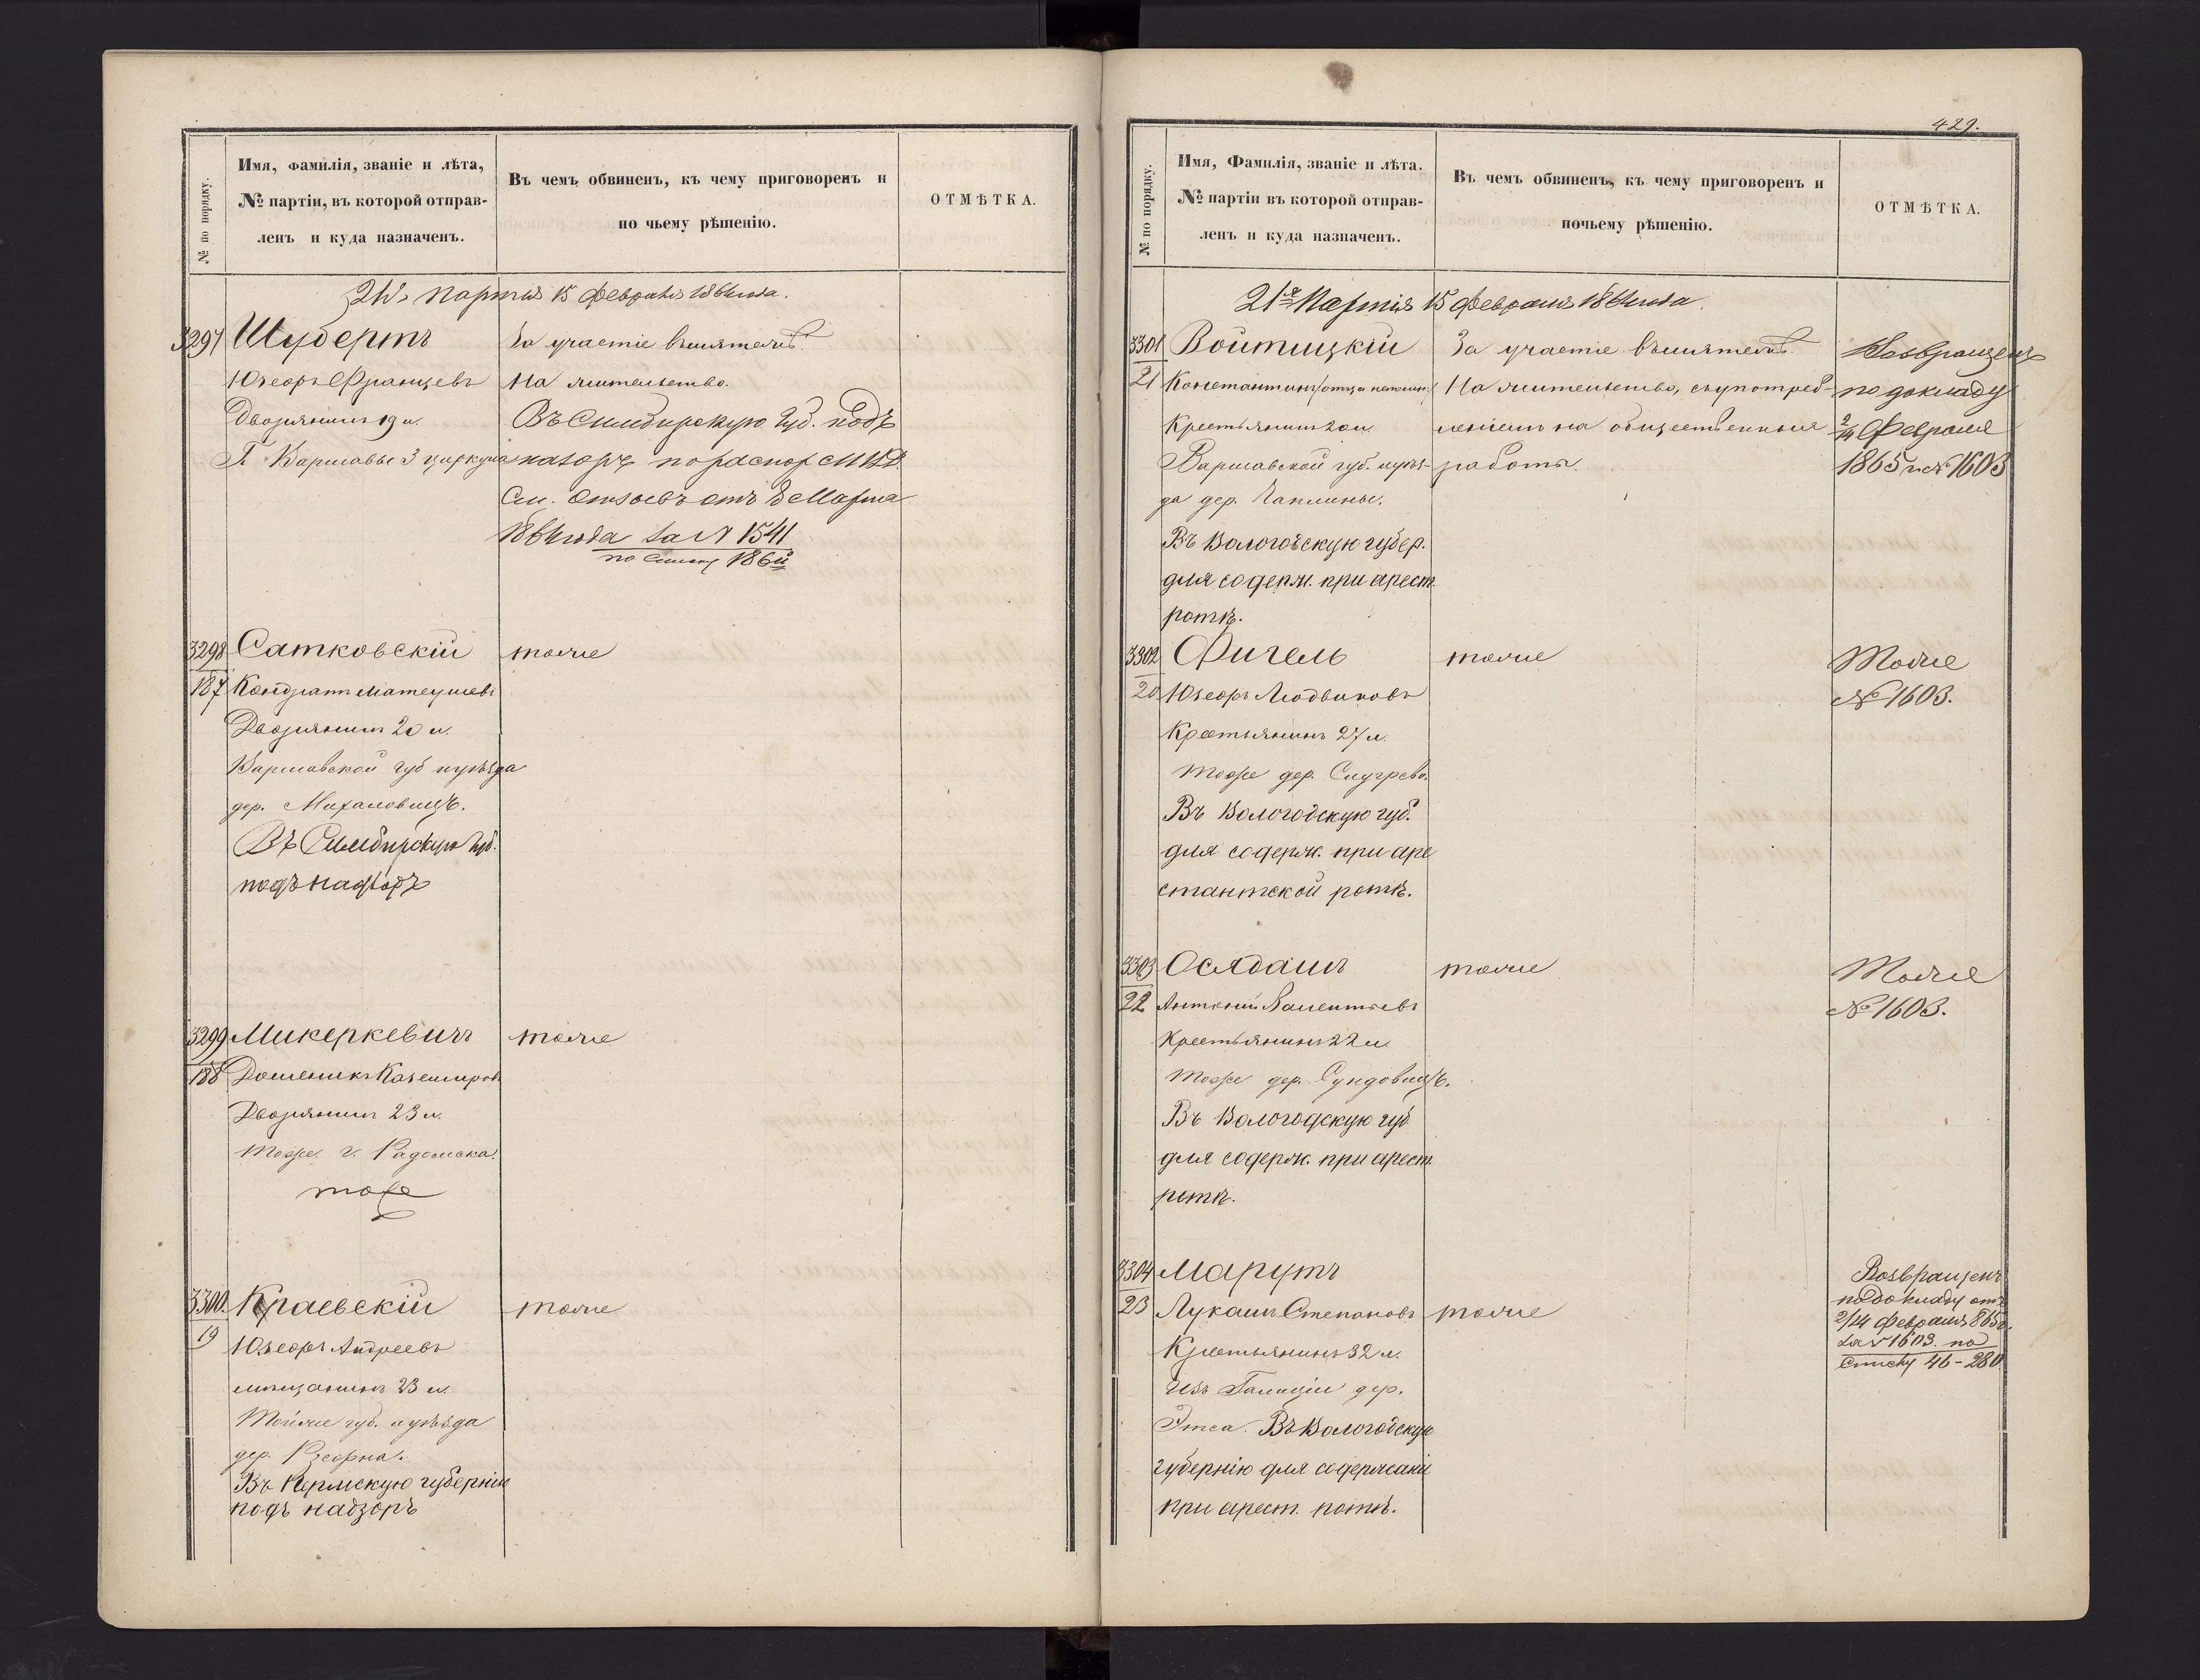 № по порядку.
Имя, фамилія, званіе и лѣта,
№ партіи, въ которой отправ-
ленъ и куда назначенъ.
Въ чемъ обвиненъ, къ чему приговоренъ и
по чьему рѣшенію.
ОТМѢТКА.
партія 15 Февраля 1864 года.
3297 Шубертъ
Юзефъ Францевъ
Дворянинъ 19 л.
Г. Варшавы 3 циркула
За участіе въ мятежѣ.
На жительство.
Въ Симбирскую Губ. подъ
надзоръ по распор МВД.
См. отзывъ отъ Марта
1864 года за № 1541
по списку 186й
3298 Сатковскій
187 Кондратъ Матеушевъ
Дворянинъ 20 л.
Варшавской губ и уѣзда
дер. Михаловицъ.
Въ Симбирскую Губ.
подъ надзоръ
тоже
3299 Микеркевичъ
188 Доменикъ Каземировъ
Дворянинъ 23 л.
Тоже г. Радомска.
тоже
тоже
3300. Краевскій
19 Юзефъ Андреевъ
мѣщанинъ 23 л.
Тойже губ. и уѣзда
дер.
Въ Пермскую губернію
подъ надзоръ
тоже
429.
№ по порядку.
Имя, Фамилія, званіе и лѣта.
№ партіи въ которой отправ-
ленъ и куда назначенъ.
Въ чемъ обвиненъ, къ чему приговоренъ и
почьему рѣшенію.
ОТМѢТКА.
21я Партія 15 Февраля 1864 года.
3301 Войтицкій
21 Константинъ (отца непомн.)
Крестьянинъ 20 л.
Варшавской губ. и уѣз-
да дер. Чаплины.
Въ Вологодскую губер.
для содерж. при арест.
ротѣ.
За участіе въ мятежѣ.
На жительство, съ употреб-
леніемъ на общественныя
работы.
Возвращенъ
по докладу
2/14 Февраля
1865 г. № 1603
3302 Фигель
20 Юзефъ Людвиковъ
Крестьянинъ 27 л.
Тоже дер.
Въ Вологодскую губ.
для содерж. при аре
стантской ротѣ.
тоже
Тоже
№ 1603.
3303 Ослданъ
22 Антоній Валентьевъ
Крестьянинъ 22 л.
Тоже дер.
Въ Вологодскую губ
для содерж. при арест.
ротѣ.
тоже
Тоже
№ 1603.
3304 Марутъ
23 Лукашъ Степановъ
Крестьянинъ 32 л.
Изъ Галиціи дер.
Этса. Въ Вологодскую
губернію для содержанія
при арест. ротѣ.
тоже
Возвращенъ
по докладу отъ
2/14 Февраля 865 г.
за № 1603. по
списку 46-280